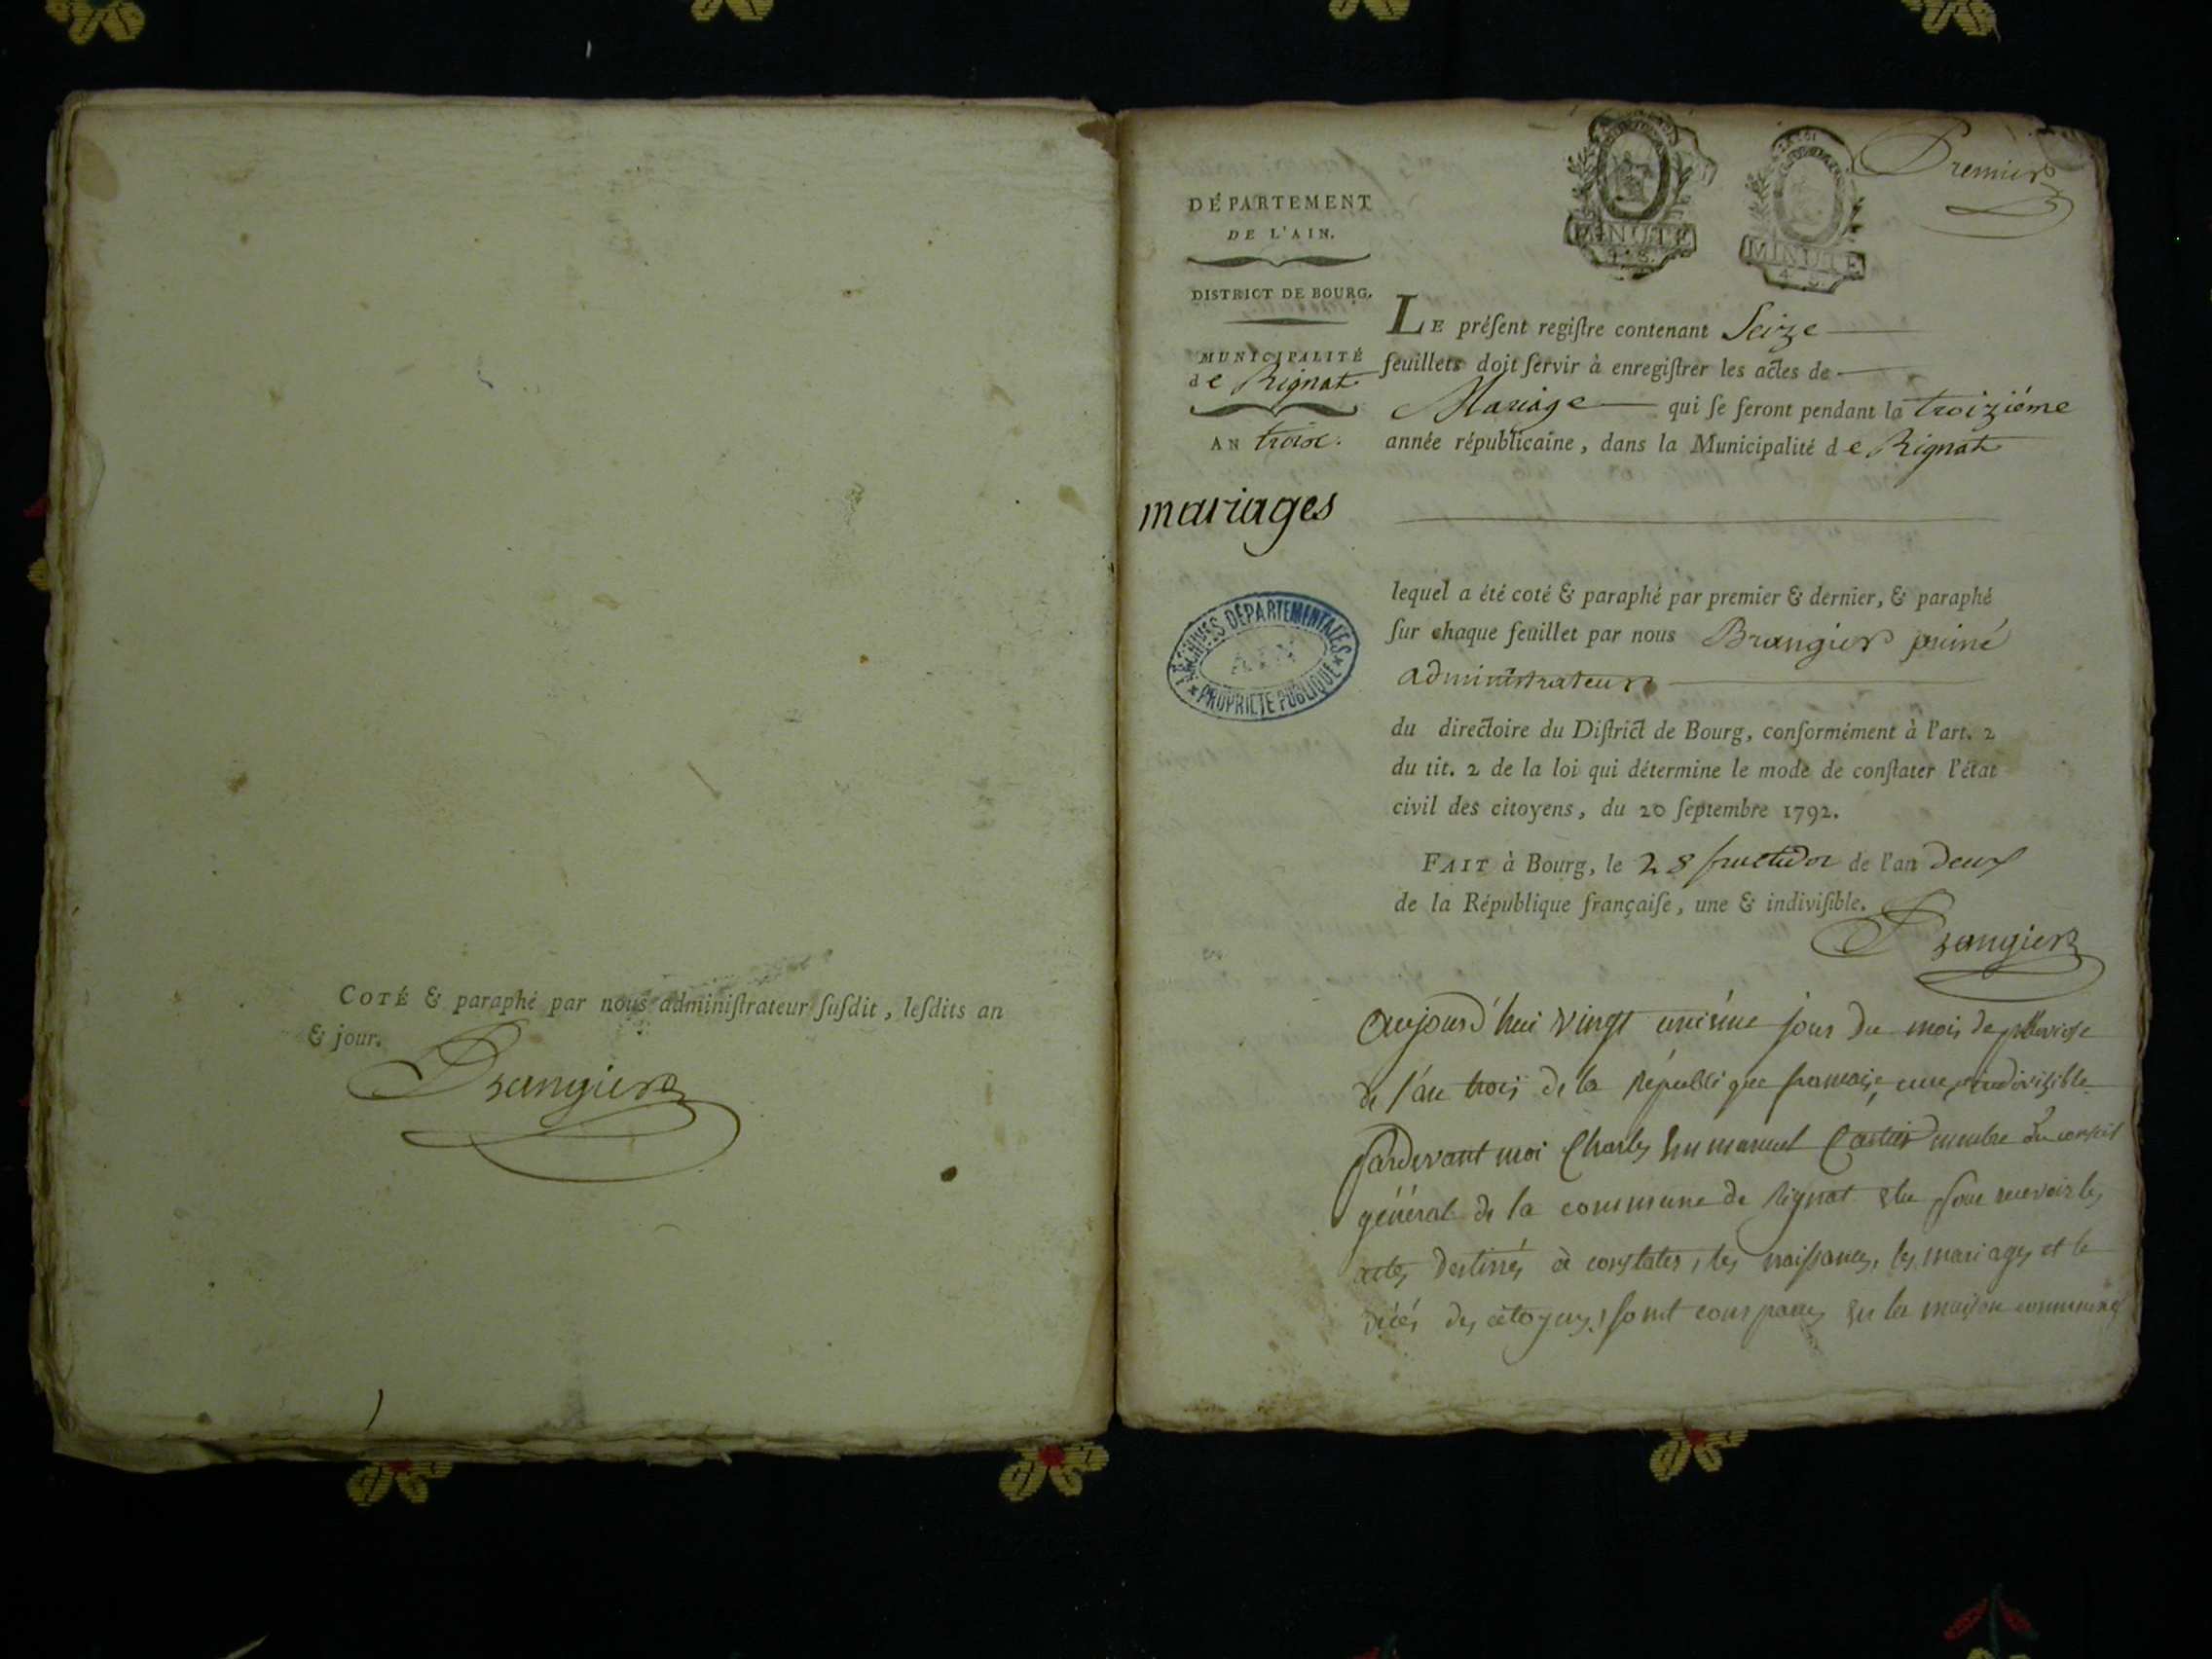 COTÉ & paraphé par nous adminiſtrateur ſuſdit, leſdits an
& jour.
Brangier
Premier
MINUTE
4. S.
MINUTE
4. S.
DÉPARTEMENT
DE L'AIN.
DISTRICT DE BOURG.
MUNICIPALITÉ
de Rignat
AN trois.
mariages
ARCHIVES DÉPARTEMENTALES
AIN
PROPRIÉTÉ PUBLIQUE
LE préſent regiſtre contenant Seize
feuillets doit ſervir à enregiſtrer les actes de
Mariage qui ſe feront pendant la troiziéme
année républicaine, dans la Municipalité de Rignat
lequel a été coté & paraphé par premier & dernier, & paraphé
ſur chaque feuillet par nous Brangier
administrateur
du directoire du Diſtrict de Bourg, conformément à l'art. 2
du tit. 2 de la loi qui détermine le mode de conſtater l'état
civil des citoyens, du 20 ſeptembre 1792.
FAIT à Bourg, le 28 fructidor de l'an deux
de la République françaiſe, une & indiviſible.
Brangier
aujourd'hui vingt unieme jour du mois de pluviose
de l'an trois de la république françaize, une indivizible
pardevant moi Charles Emmanuel Cartier membre du conseil
général de la commune de Rignat elu pour recevoir les
actes destinés à constater, les naissances, les mariages et le
décés des citoyens, sont comparus en la maison commune